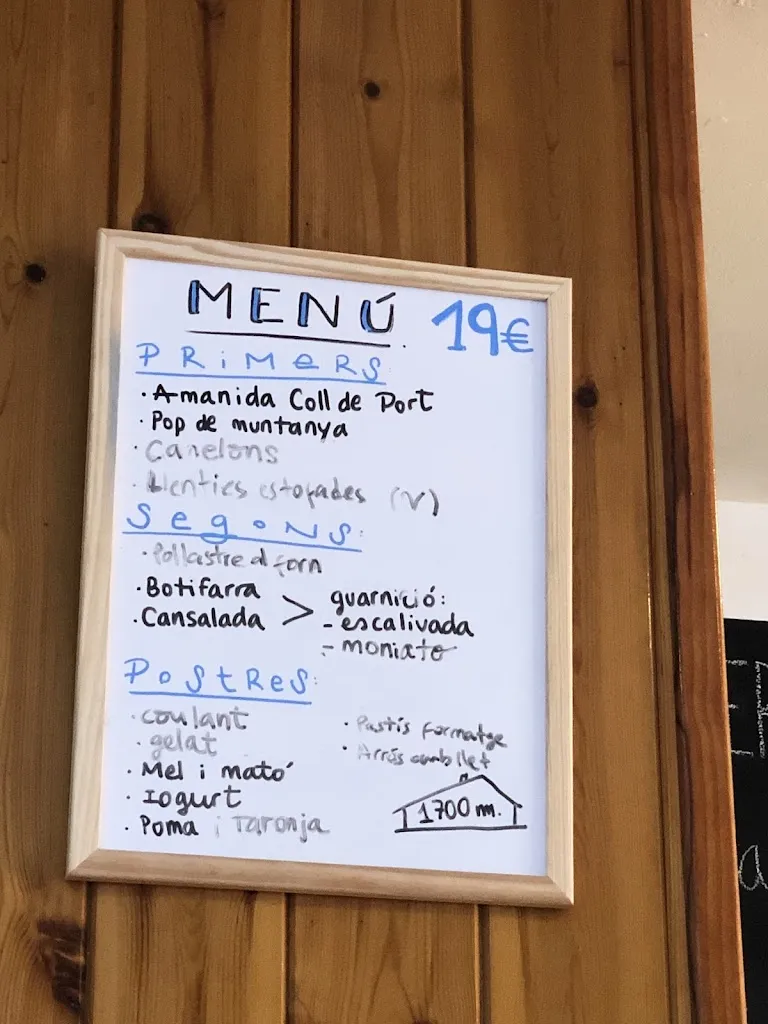 MENÚ 19€
PRiMeRS
· Amanida Coll de Port
· Pop de muntanya
· Canelons
· Llenties estofades (V)
SegoNS:
· Pollastre al forn
· Botifarra
· Cansalada > guarnició:
- escalivada
- moniato
PoStReS:
· coulant
· gelat
· Mel i mató
· Iogurt
· Poma i Taronja
· Pastís formatge
· Arròs amb llet
1700 m.